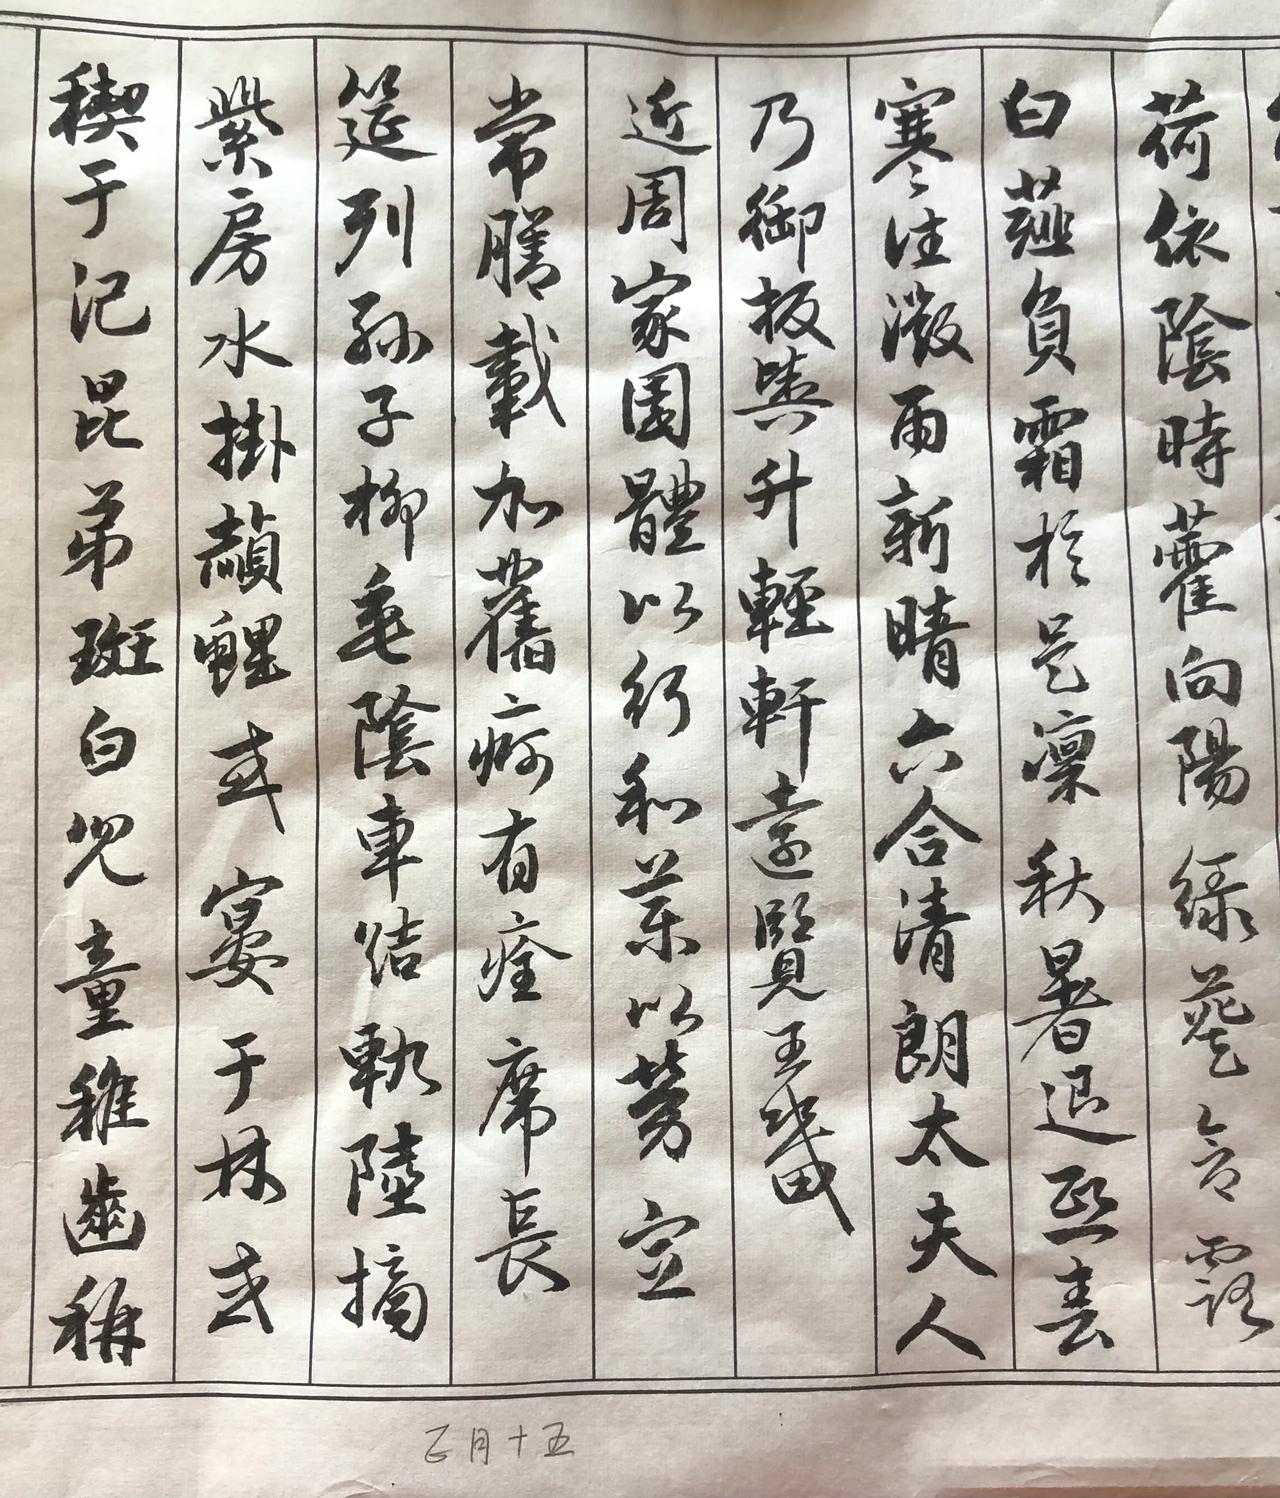 荷依陰時藿向陽綠葵含露
白薤負霜於是凜秋暑退熙春
寒往溦雨新晴六合清朗太夫人
乃御板輿升輕軒遠覽王畿
近周家園體以行和藥以勞宣
常膳載加舊痾有痊席長
筵列孫子柳垂陰車結軌陸摘
紫房水掛赬鯉或宴于林或
禊于汜昆弟斑白兒童稚齒稱
正月十五